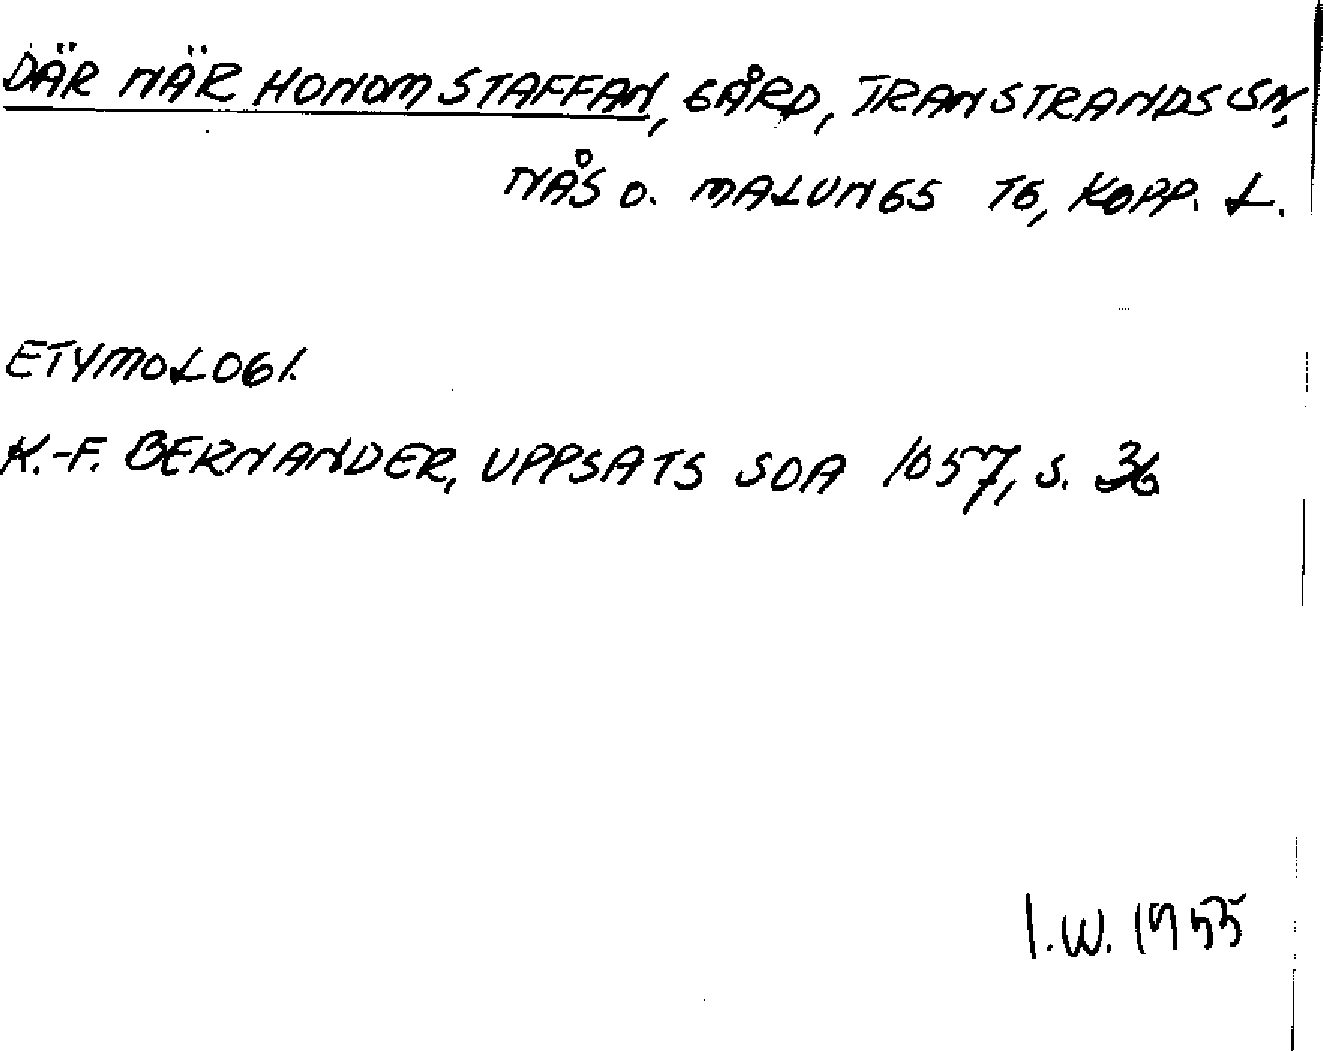 DÄR NÄR HONOM STAFFAN, GÅRD, TRANSTRANDS SN,
NÅS O. MALUNGS TG, KOPP. L.
ETYMOLOGI.
K.-F. BERNANDER, UPPSATS SOA 1057, S. 36
I.W. 1955